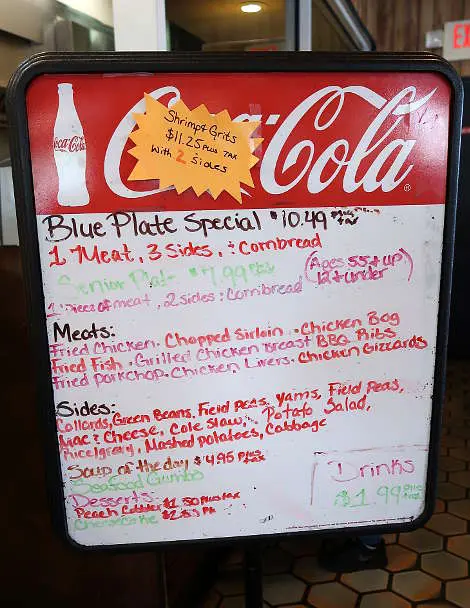 EXI
Coca-Cola
Coca-Cola
®
Shrimp & Grits
$11.25 PLUS TAX
with 2 sides
Blue Plate Special $10.49 plus tax
1 Meat, 3 Sides, & Cornbread
Senior Plate $7.99 plus
(Ages 55 & up
12 & under)
1 piece of meat, 2 sides & Cornbread
Meats:
Fried Chicken. Chopped Sirloin. Chicken Bog
Fried Fish. Grilled Chicken Breast BBQ Ribs
Fried Porkchop. Chicken Livers. Chicken Gizzards
Sides:
Collards, Green Beans, Field peas, yams, Field Peas,
Mac & Cheese, Cole Slaw, Potato Salad,
Rice/gravy, Mashed potatoes, Cabbage
Soup of the day $4.95 plus tax
Seafood Gumbo
Desserts:
Peach Cobbler $1.50 plus tax
Cheesecake
Drinks
$1.99 plus tax